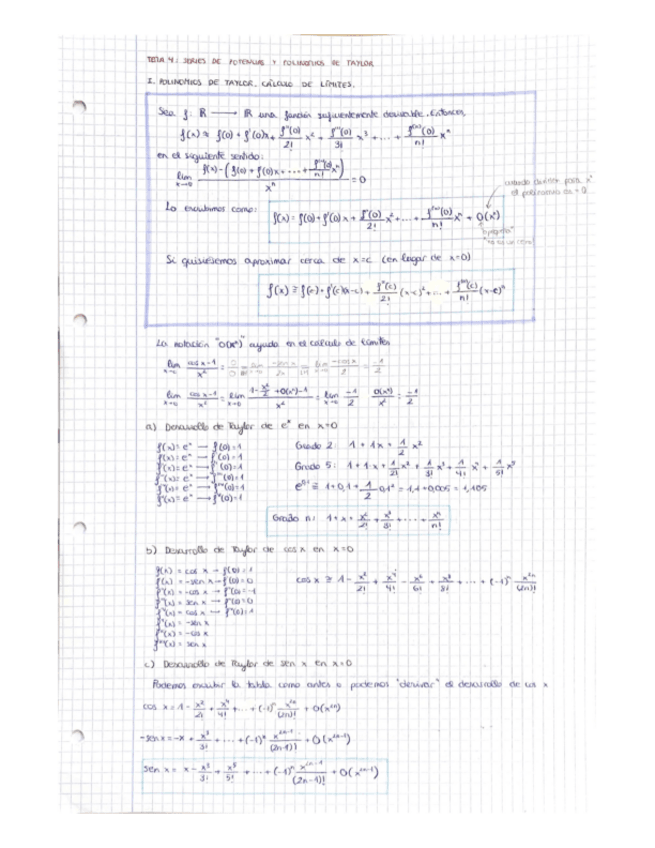 TEMA 4: SERIES DE POTENCIAS Y POLINOMIOS DE TAYLOR
I. POLINOMIOS DE TAYLOR. CÁLCULO DE LÍMITES.
Sea f: R → R una función suficientemente derivable. Entonces,
f(x) ≈ f(0) + f'(0)x + f''(0)/2! x² + f'''(0)/3! x³ + ... + f⁽ⁿ⁾(0)/n! xⁿ
en el siguiente sentido:
lim x→0 (f(x) - (f(0) + f'(0)x + ... + f⁽ⁿ⁾(0)/n! xⁿ))/xⁿ = 0
cuando divides para xⁿ
el polinomio da = 0
Lo escribimos como: f(x) = f(0) + f'(0)x + f''(0)/2! x² + ... + f⁽ⁿ⁾(0)/n! xⁿ + O(xⁿ)
Si quisiésemos aproximar cerca de x=c (en lugar de x=0)
f(x) ≅ f(c) + f'(c)(x-c) + f''(c)/2! (x-c)² + ... + f⁽ⁿ⁾(c)/n! (x-c)ⁿ
La notación "O(xⁿ)" ayuda en el cálculo de límites
lim x→0 (cos x - 1)/x² = 0/0 = lim x→0 -sen x/2x = lim x→0 -cos x/2 = -1/2
lim x→0 (cos x - 1)/x² = lim x→0 (1 - x²/2 + O(x²) - 1)/x² = lim x→0 -1/2 O(x²)/x² = -1/2
a) Desarrollo de Taylor de eˣ en x=0
f(x) = eˣ → f(0) = 1 Grado 2: 1 + 1x + 1/2 x²
f'(x) = eˣ → f'(0) = 1
f''(x) = eˣ → f''(0) = 1 Grado 5: 1 + 1x + 1/2! x² + 1/3! x³ + 1/4! x⁴ + 1/5! x⁵
f'''(x) = eˣ → f'''(0) = 1
f(x) = eˣ → f(0) = 1 e^0,1 ≅ 1 + 0,1 + 1/2 0,1² = 1,1 + 0,005 = 1,105
f(x) = eˣ → f(0) = 1
Grado n: 1 + x + x²/2! + x³/3! + ... + xⁿ/n!
b) Desarrollo de Taylor de cos x en x=0
f(x) = cos x → f(0) = 1
f'(x) = -sen x → f'(0) = 0 cos x ≅ 1 - x²/2! + x⁴/4! - x⁶/6! + x⁸/8! + ... + (-1)ⁿ x²ⁿ/(2n)!
f''(x) = -cos x → f''(0) = -1
f'''(x) = sen x → f'''(0) = 0
f(x) = cos x → f(0) = 1
f(x) = -sen x
f(x) = -cos x
f(x) = sen x
c) Desarrollo de Taylor de sen x en x=0
Podemos escribir la tabla como antes o podemos "derivar" el desarrollo de cos x
cos x = 1 - x²/2! + x⁴/4! + ... + (-1)ⁿ x²ⁿ/(2n)! + O(x²ⁿ)
-sen x = -x + x³/3! + ... + (-1)ⁿ x²ⁿ⁻¹/(2n-1)! + O(x²ⁿ⁻¹)
sen x = x - x³/3! + x⁵/5! + ... + (-1)ⁿ x²ⁿ⁻¹/(2n-1)! + O(x²ⁿ⁻¹)